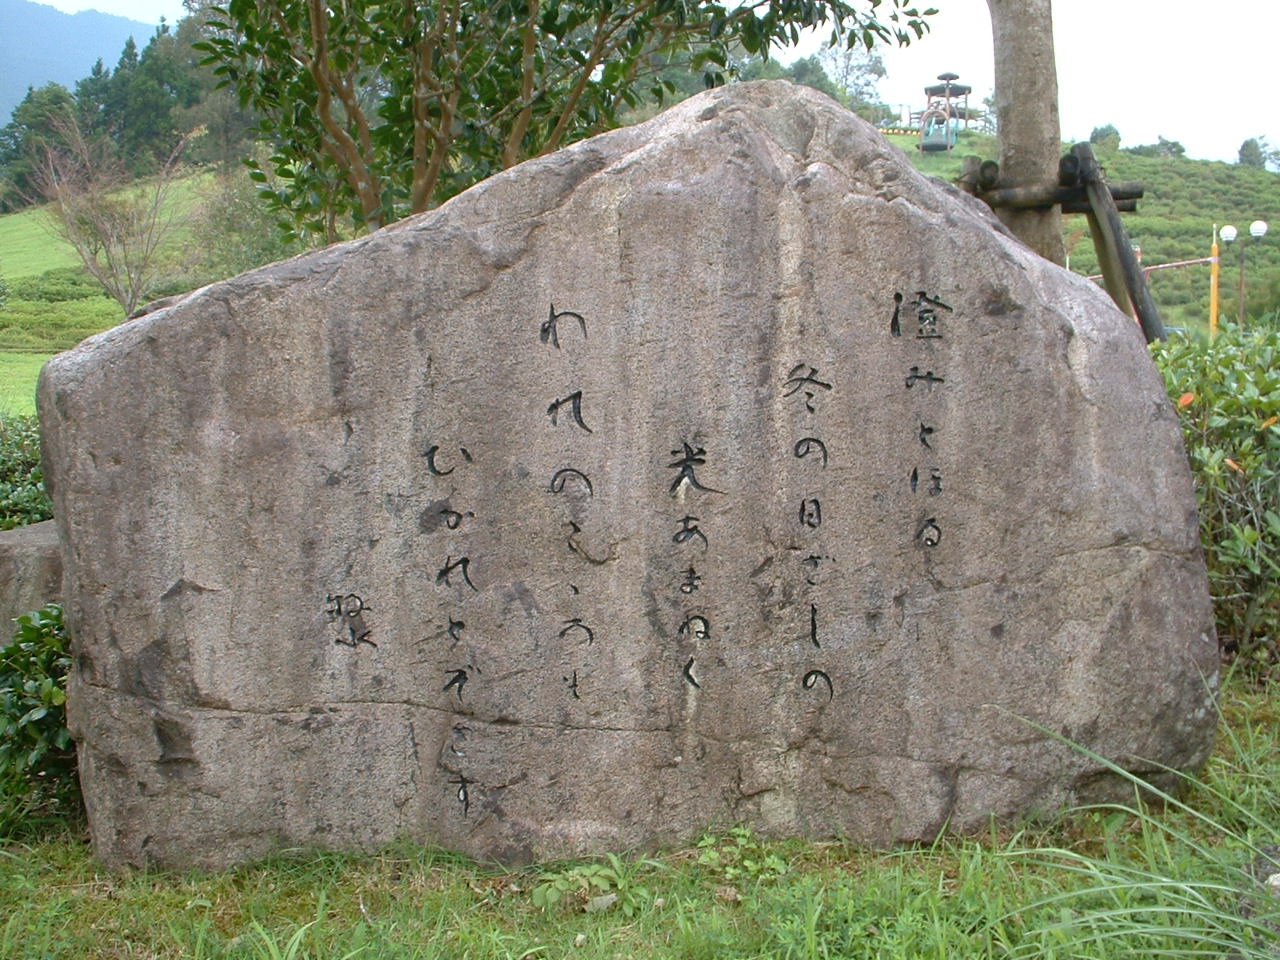 澄みとほる
冬の日ざしの
光あまねく
われのこゝろも
ひかれとぞさす
牧水